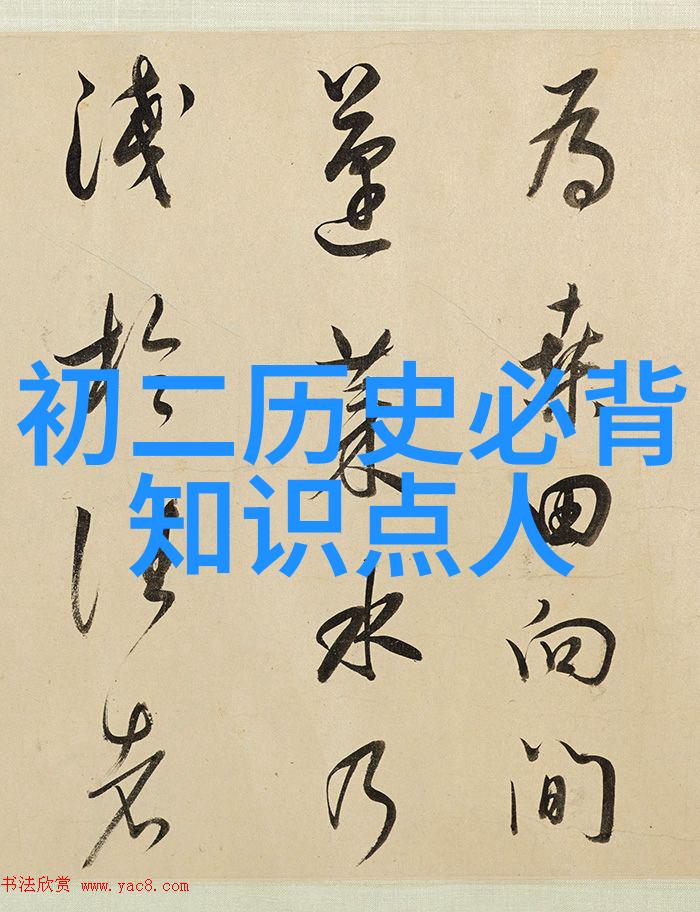 為桑田向間
蓬萊水乃
淺於往者
初二历史必背
知识点人
书法欣赏 www.yac8.com